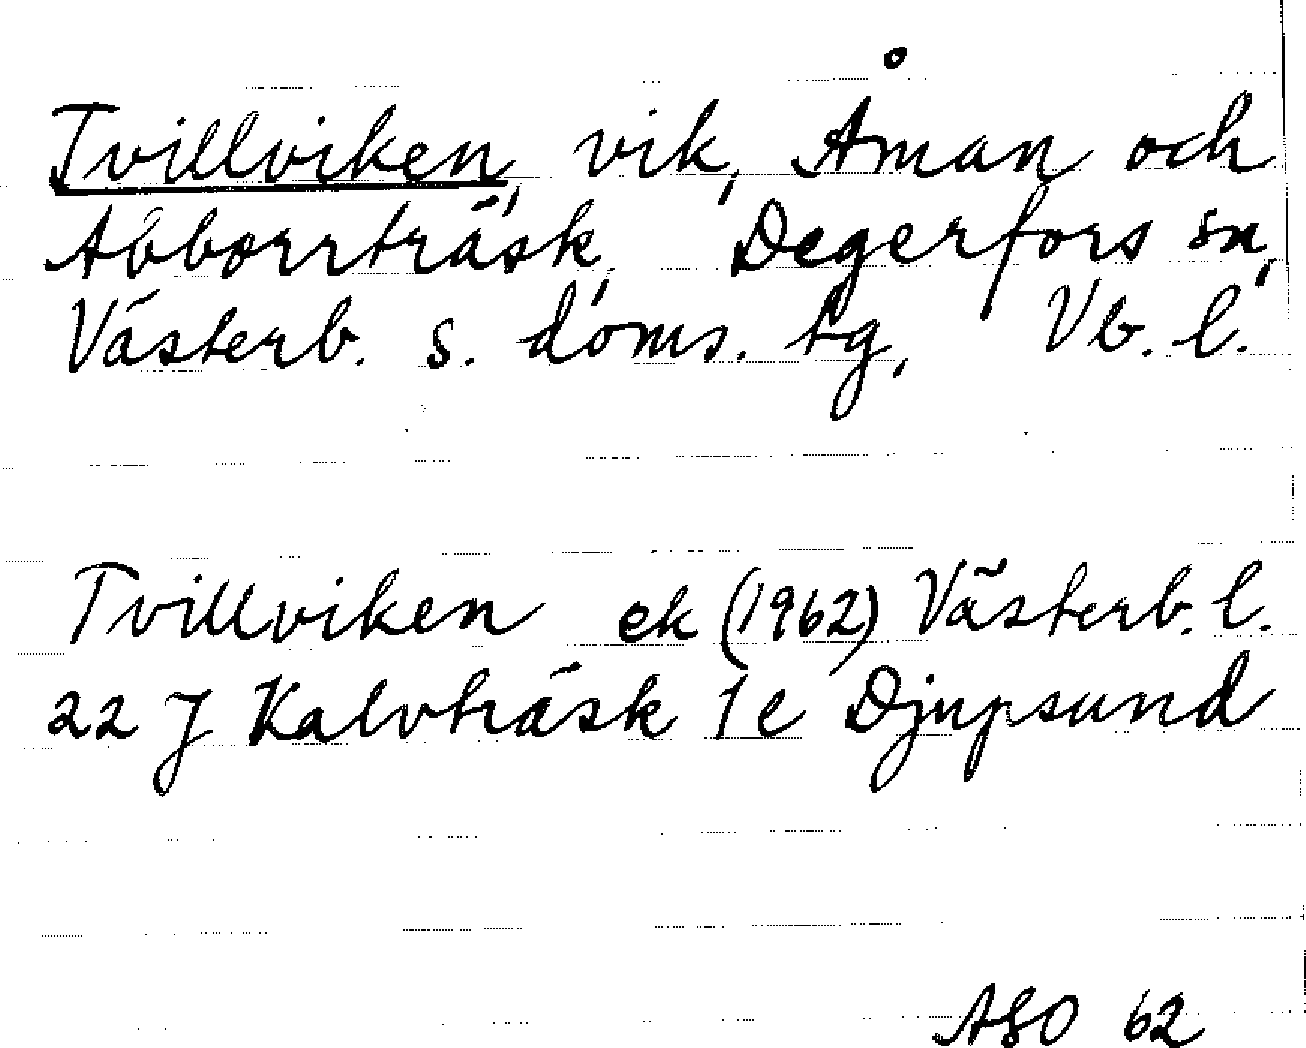 Tvillviken, vik, Åman och
Abborrträsk, Degerfors sn,
Västerb. s. doms. tg, Vb. l.
Tvillviken ek (1962) Västerb. l.
22 J Kalvträsk 1 e Djupsund
ASO 62